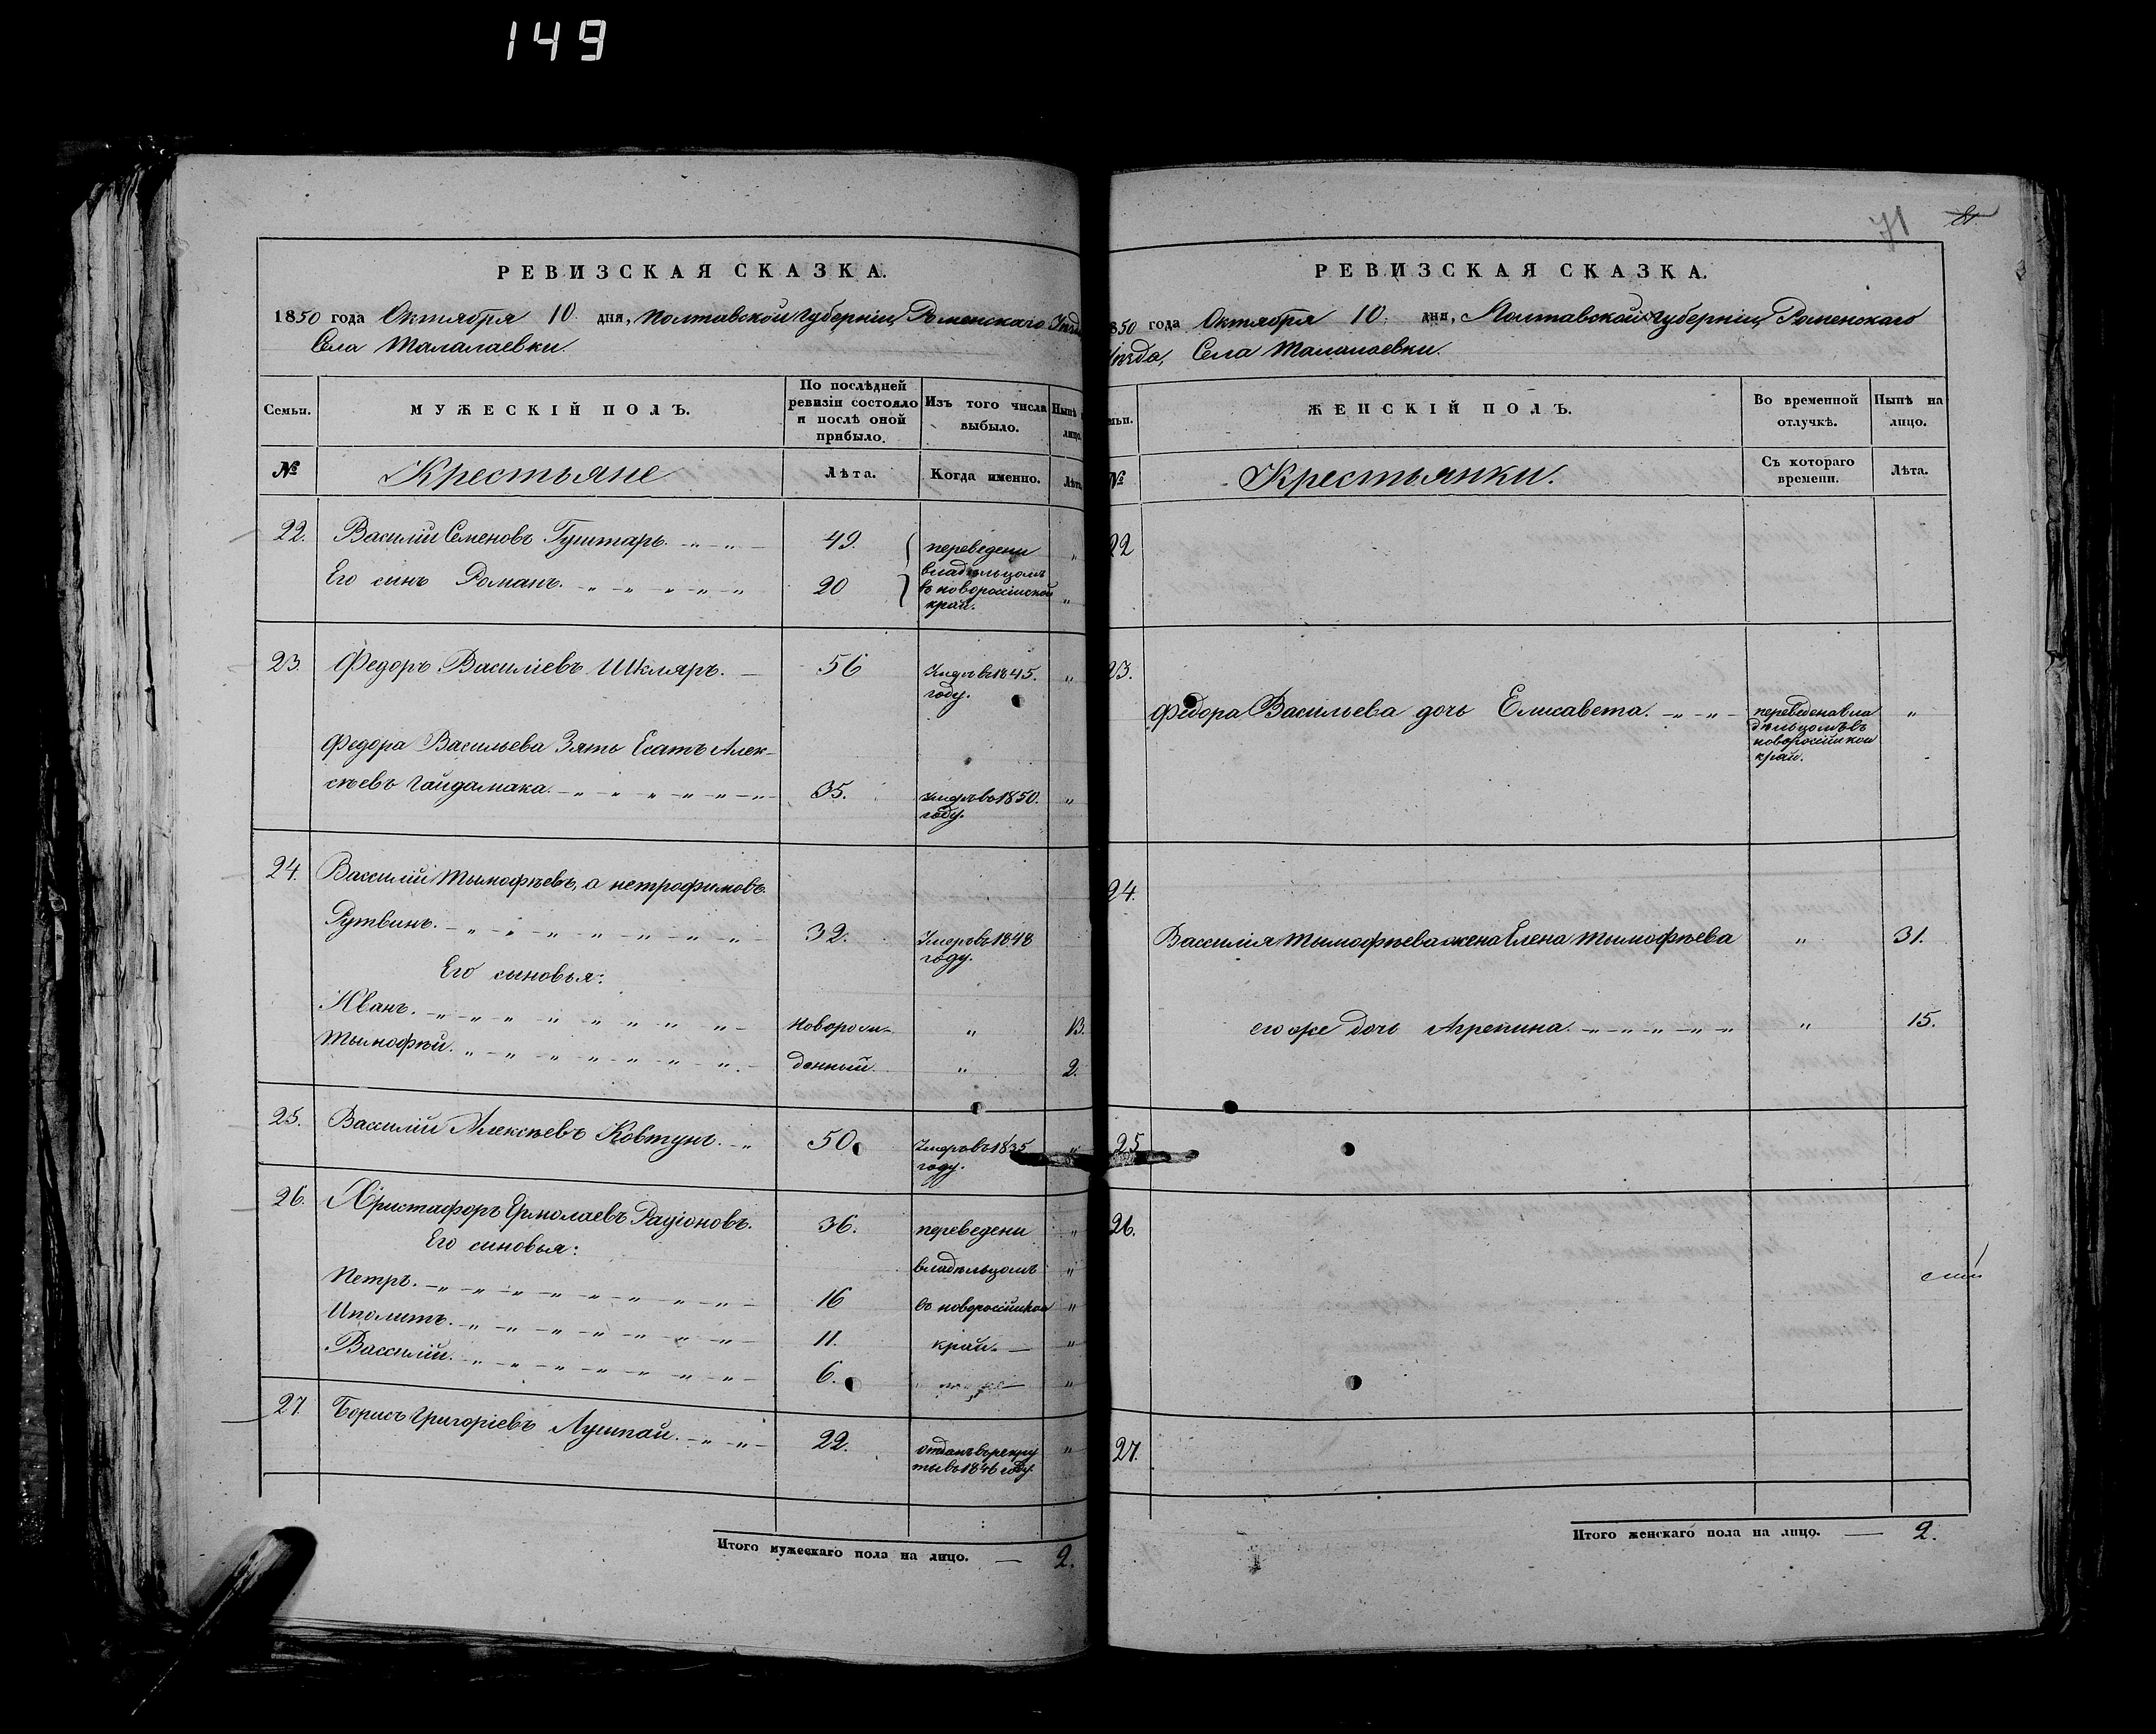 149
71
РЕВИЗСКАЯ СКАЗКА.
1850 года Октября 10 дня, Полтавской Губерніи, Роменскаго
Села Талалаевки.
Семьи.
МУЖЕСКІЙ ПОЛЪ.
По послѣдней ревизіи состояло и послѣ оной прибыло.
Изъ того числа выбыло.
Нынѣ
лицо.
№
Крестьяне
Лѣта.
Когда именно.
Лѣта
22. Василій Семеновъ Гуштарь. 49. переведени
владѣльцомъ
Его сынъ Романъ. 20 въ новоросійской
край.
23. Федоръ Василіевъ Шкляръ. 56 Умеръ въ 1845.
году.
Федора Васильева Зять Алек-
сѣевъ Гайдамака. 35. Умеръ въ 1850.
году.
24. Вассилій Тымофѣевъ, а нетрофимовъ
Рутвинъ. 32. Умеръ въ 1848
году.
Его сыновья:
Иванъ. Новорож- " 13.
Тымофѣй. денный " 2.
25. Вассилій Алексѣевъ Ковтунъ. 50. Умеръ въ 1835
году.
26. Христафоръ Ермолаевъ Радіоновъ. 36. переведени
Его синовья: владѣльцомъ
Петръ. 16 въ новоросійской
Иполитъ. 11. край.
Вассилій. 6.
27 Борисъ Григоріевъ Лушпай. 22. отданъ въ рекру
ты въ 1846 году.
Итого мужескаго пола на лицо. — 2.
РЕВИЗСКАЯ СКАЗКА.
850 года Октября 10. дня, Полтавской Губерніи, Роменскаго
ѣзда, Села Талалаевки.
ЖЕНСКІЙ ПОЛЪ.
Во временной отлучкѣ.
Нынѣ на лицо.
№
Крестьянки.
Съ котораго времени.
Лѣта.
22
23.
Федора Васильева дочь Елисавета. переведена вла
дѣльцомъ въ
новоросійской
край.
24.
Вассилія Тымофѣева жена Елена Тымофѣева " 31.
его же дочь Агрепина. " 15.
25
26.
27.
Итого женскаго пола на лицо. — 2.